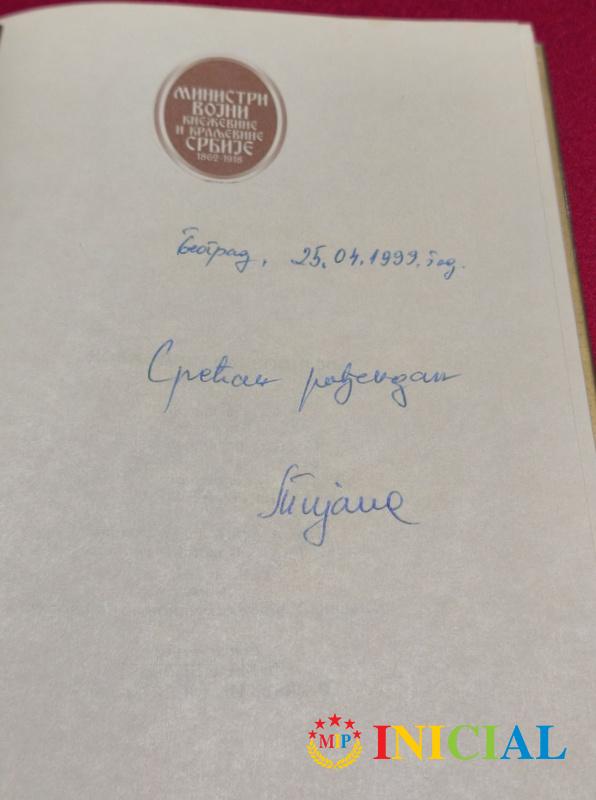 МИНИСТРИ
ВОЈНИ
КНЕЖЕВИНЕ
И КРАЉЕВИНЕ
СРБИЈЕ
1862-1918
Београд, 25.04.1999. год.
Срећан рођендан
Тијана
MIP INICIAL